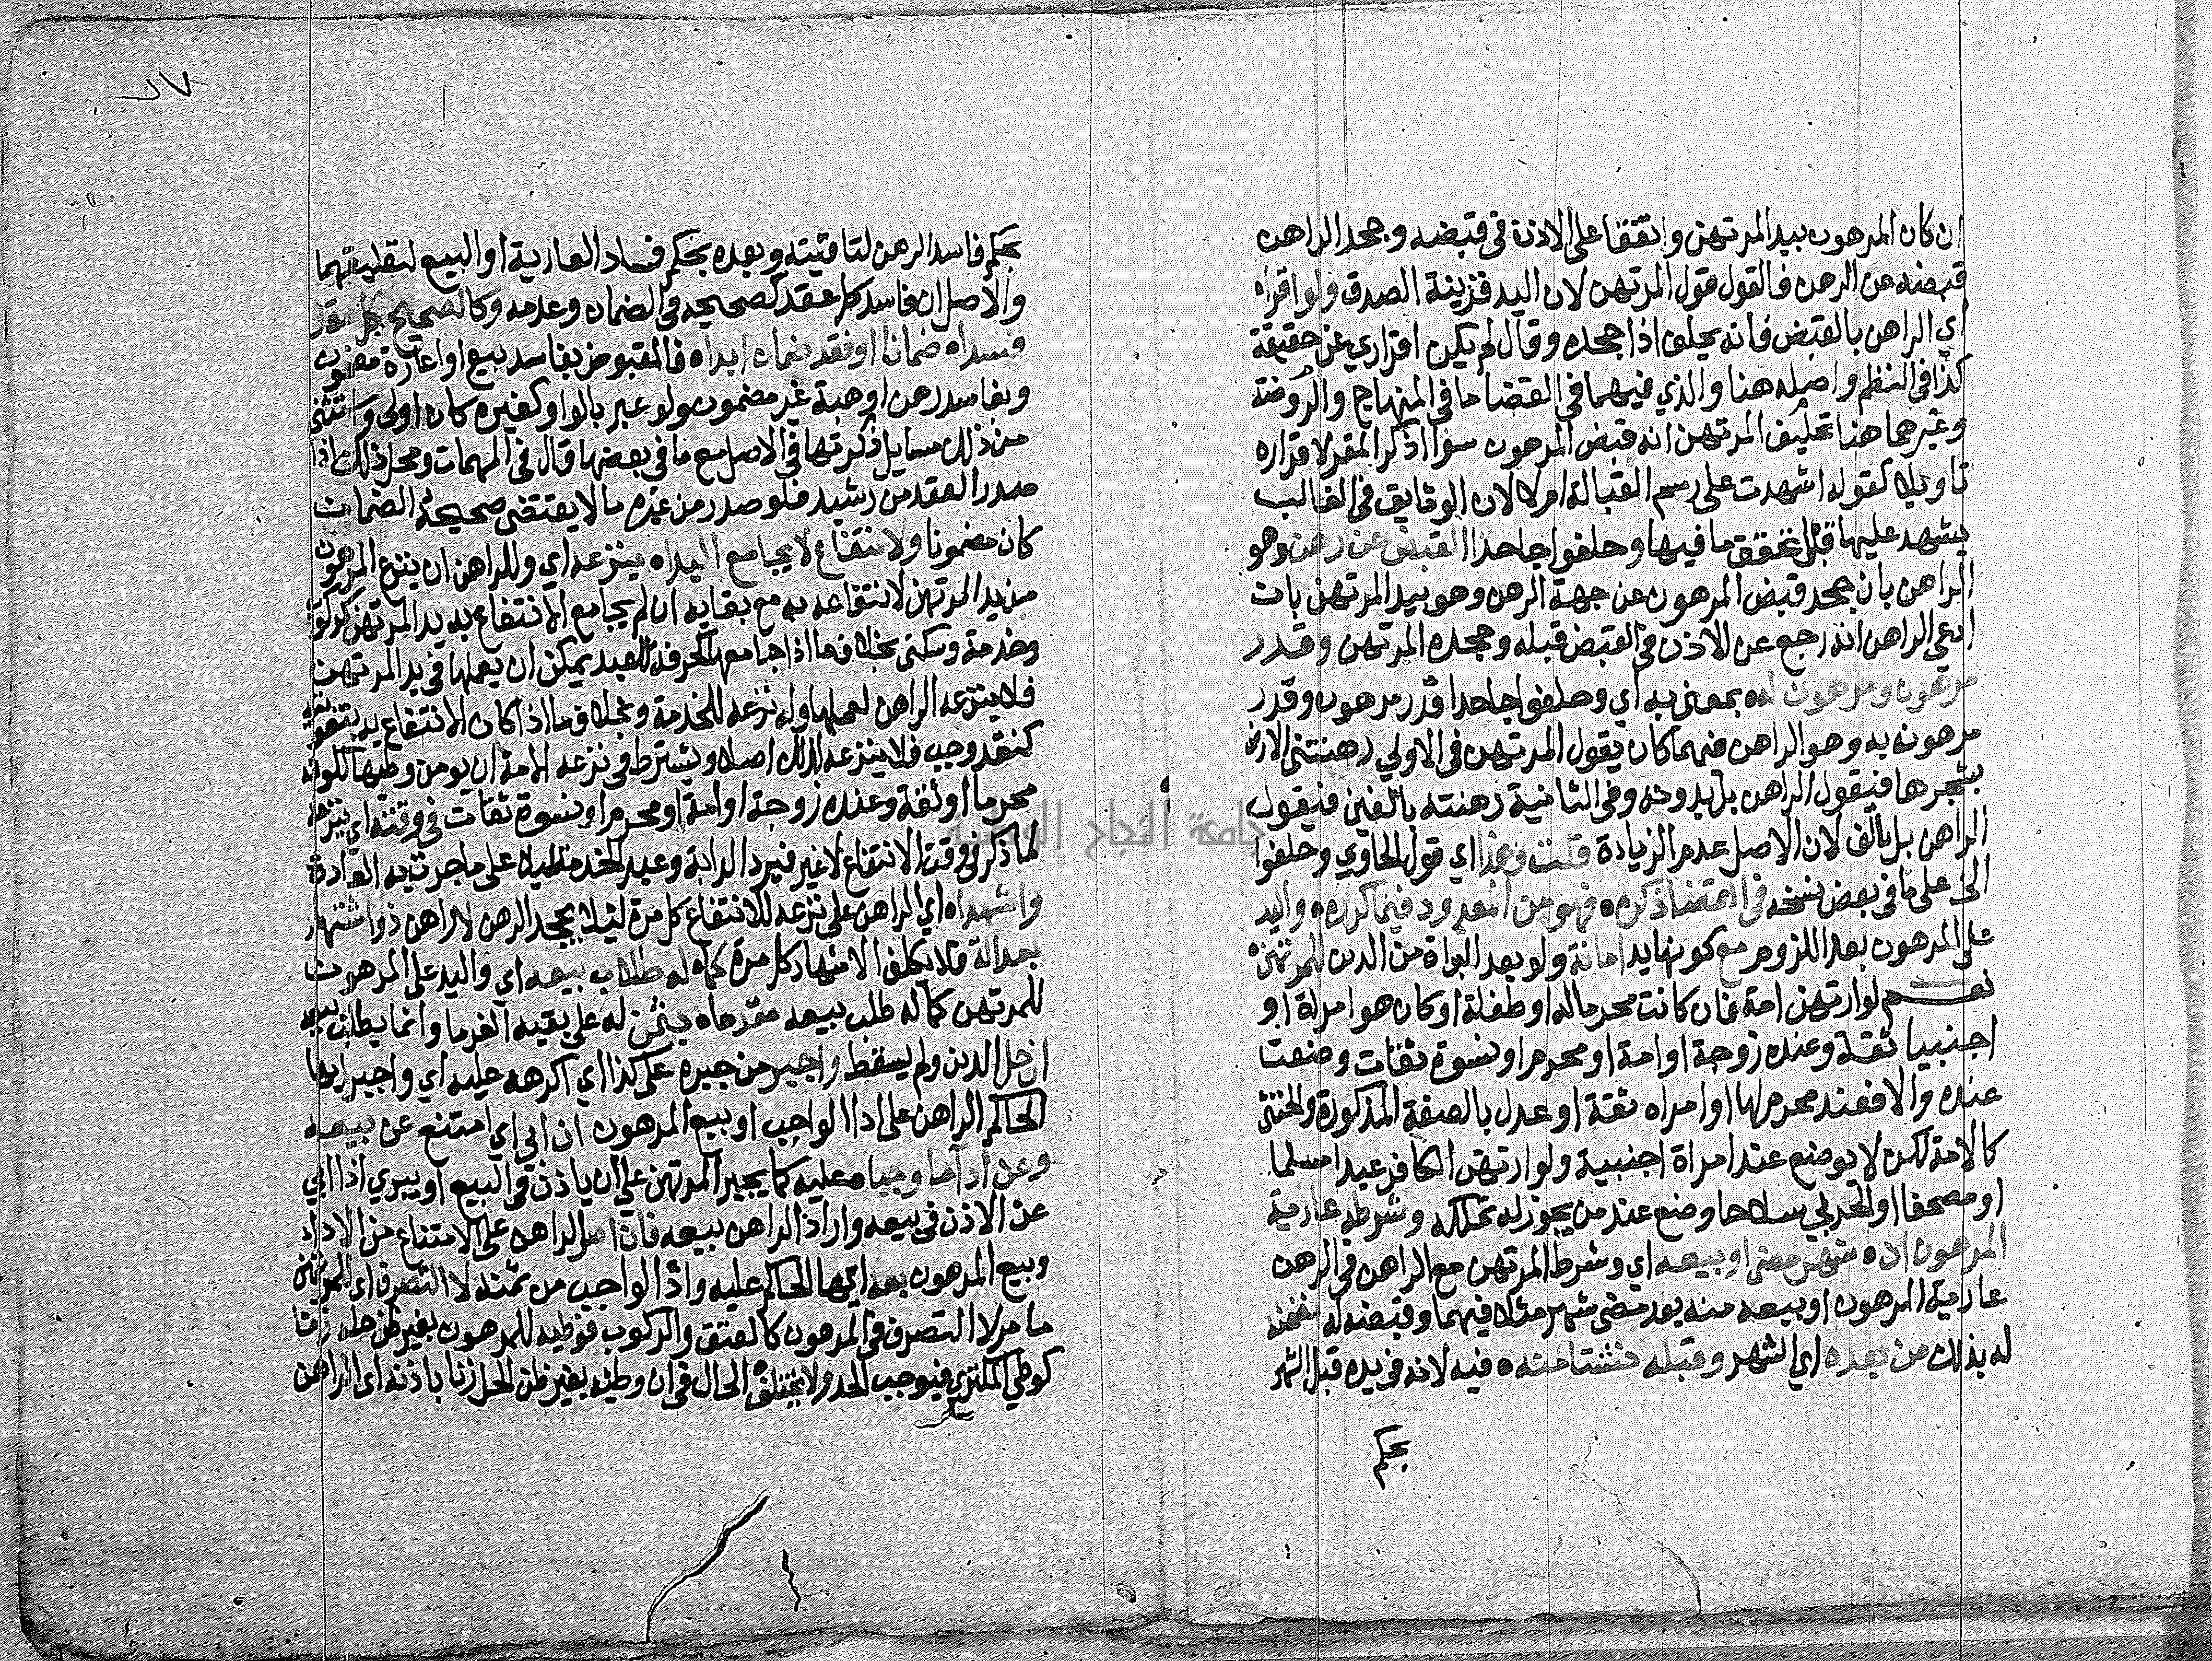 ان كان المرهون بيد المرتهن واتفقا على الاذن في قبضه وجحد الراهن
قبضه عن الرهن فالقول قول المرتهن لان اليد قرينة الصدق ولو اقراه
اي الراهن بالقبض فانه يحلف اذا جحده وقال لم يكن اقراري عن حقيقة
كذا في النظم واصله هنا والذي فيهما في القضا ما في المنهاج والروضة
وغيرهما هنا تحليف المرتهن انه قبض المرهون سوا اذكر المقر لاقراره
تاويلا كقوله اشهدت على رسم القبالة ام لا لان الوثايق في الغالب
يشهد عليها قبل تحقق ما فيها وحلفوا جاحدا القبض عن رهن وهو
الراهن بان جحد قبض المرهون عن جهة الرهن وهو بيد المرتهن بان
ادعى الراهن انه رجع عن الاذن في القبض قبله وجحده المرتهن وقدر
مرهون ومرهون له بمعنى به اي وحلفوا جاحدا قدر مرهون وقدر
مرهون به وهو الراهن فيهما كان يقول المرتهن في الاولي رهنتني الارض
بشجرها فيقول الراهن بل بدونه وفي الثانية رهنته بالفين فيقول
الراهن بل بالف لان الاصل عدم الزيادة قلت وهذا اي قول الحاوي وحلفوا
الى على ما في بعض نسخه في القضا ذكره فهو من المعدود فيما كرره واليد
على المرهون بعد اللزوم مع كونها يد امانة ولو بعد البراة من الدين للمرتهن
نعم لو ارتهن امة فان كانت محرما له او طفلة او كان هو امراة او
اجنبيا ثقة وعنده زوجة او امة او محرم او نسوة ثقات وضعت
عنده والا فعند محرم لها او امراه ثقة او عدل بالصفة المذكورة والخنثى
كالامة لكن لا يوضع عند امراة اجنبية ولو ارتهن الكافر عبدا مسلما
او مصحفا او الحربي سلاحا وضع عند من يجوز له تملكه وشرطه عارية
المرهون اذ شهر مضى او بيعه اي وشرط المرتهن مع الراهن في الرهن
عارية المرهون او بيعه منه بعد مضى شهر مثلا فيهما وقبضه له
له بذلك من بعده اي الشهر وقبله فيه لانه في يده قبل الشهر
بحكم
جامعة النجاح الوطنية
بحكم فاسد الرهن لتاقيته وبعده بحكم فساد العارية او البيع لتعليقهما
والاصل ان فاسد كل عقد كصحيحه في الضمان وعدمه وكالصحيح
فسداه ضمانا او فقد ضمان ابداه فالمقبوض بفاسد بيع او اعارة مضمون
وبفاسد رهن او هبة غير مضمون ولو عبر بالواو كغيره كان اولى واستثنى
من ذلك مسايل ذكرتها في الاصل مع ما في بعضها قال في المهمات ومحل ذلك اذا
صدر العقد من رشيد فلو صدر من غيره ما لا يقتضي صحيحه الضمان
كان مضمونا ولانتفاع لا يجامع اليداه ينزعه اي وللراهن ان ينزع المرهون
من يد المرتهن لانتفاعه به مع بقايه ان لم يجامع الانتفاع به يد المرتهن كركوب
وخدمة وسكنى بخلاف ما اذا جامعها كحرفة للعبد يمكن ان يعملها في يد المرتهن
فلا ينزعه الراهن لعملها وله نزعه للخدمة وبخلاف ما اذا كان الانتفاع به
كنقد وحب فلا ينزعه لذلك اصلا ويشترط في نزعه الامة ان يومن وطيها لكونه
محرما او ثقة وعنده زوجة او امة او محرم او نسوة ثقات في وقته اي ينزعه
لما ذكر في وقت الانتفاع لا غير فيرد الدابة وعبد الخدمة ليلا على ما جرت به العادة
واشهداه اي الراهن على نزعه للانتفاع كل مرة ليلا يجحد الرهن لا راهن ذو اشتهر
بعدالة فلا يكلف الاشهاد كل مرة كماه له طلاب بيعه اي واليد على المرهون
للمرتهن كما له طلب بيعه مقدماه بثمن له على بقية الغرما وانما يطلب بيعه
ان حل الدين ولم يسقط واجبر من جبره على كذا اي اكرهه عليه اي واجبر ايها
الحاكم الراهن على ادا الواجب او بيع المرهون ان ابى اي امتنع عن بيعه
وعن ادا ما وجبا عليه كما يجبر المرتهن على ان ياذن في البيع او يبري اذا ابي
عن الاذن في بيعه واراد الراهن بيعه فان اصر الراهن على الامتناع من الاداء
وبيع المرهون بعد ايها الحاكم عليه واد الواجب من ثمنه لا التصرف اي للمرتهن
ما مر لا التصرف في المرهون كالعتق والركوب فوطيه للمرهون بغير ظن حله زنا
كوطي المكتري فيوجب الحد ولا يختلف الحال في ان وطئه بغير ظن الحل زنا باذنه اي الراهن